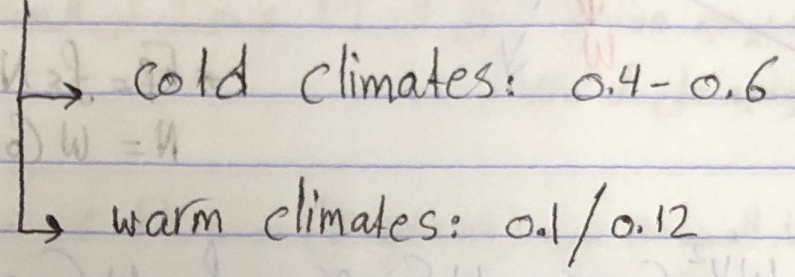 → cold climates: 0.4 - 0.6
→ warm climates: 0.1 / 0.12